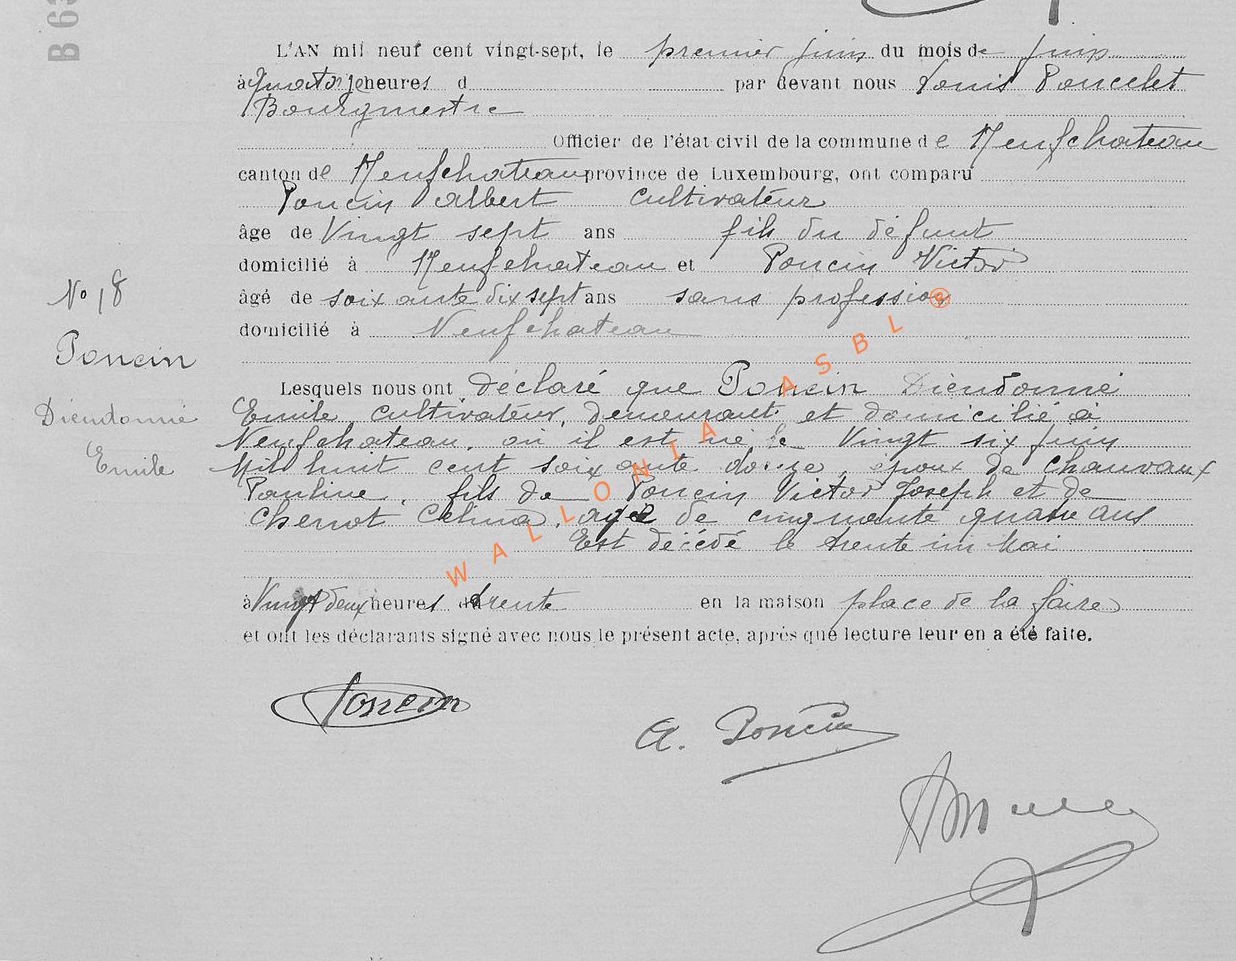 B 63
L'AN mil neuf cent vingt-sept, le premier juin du mois de juin
à quatorze heures d par devant nous Louis Poncelet
Bourgmestre
Officier de l'état civil de la commune de Neufchateau
canton de Neufchateau province de Luxembourg, ont comparu
Poncin Albert cultivateur
âge de Vingt sept ans fils du défunt
domicilié à Neufchateau et Poncin Victor
âgé de soixante dix sept ans sans profession
domicilié à Neufchateau
No 18
Poncin
Dieudonné
Emile
Lesquels nous ont déclaré que Poncin Dieudonné
Emile cultivateur, demeurant et domicilié à
Neufchateau, où il est né le Vingt six juin
Mil huit cent soixante douze, époux de Chauvaux
Pauline, fils de Poncin Victor Joseph et de
Chenot Célina, agé de cinquante quatre ans
Est décédé le trente un Mai
à Vingt deux heures trente en la maison place de la foire
et ont les déclarants signé avec nous le présent acte, après que lecture leur en a été faite.
Poncin
A. Poncin
WALLONIA ASBL ®